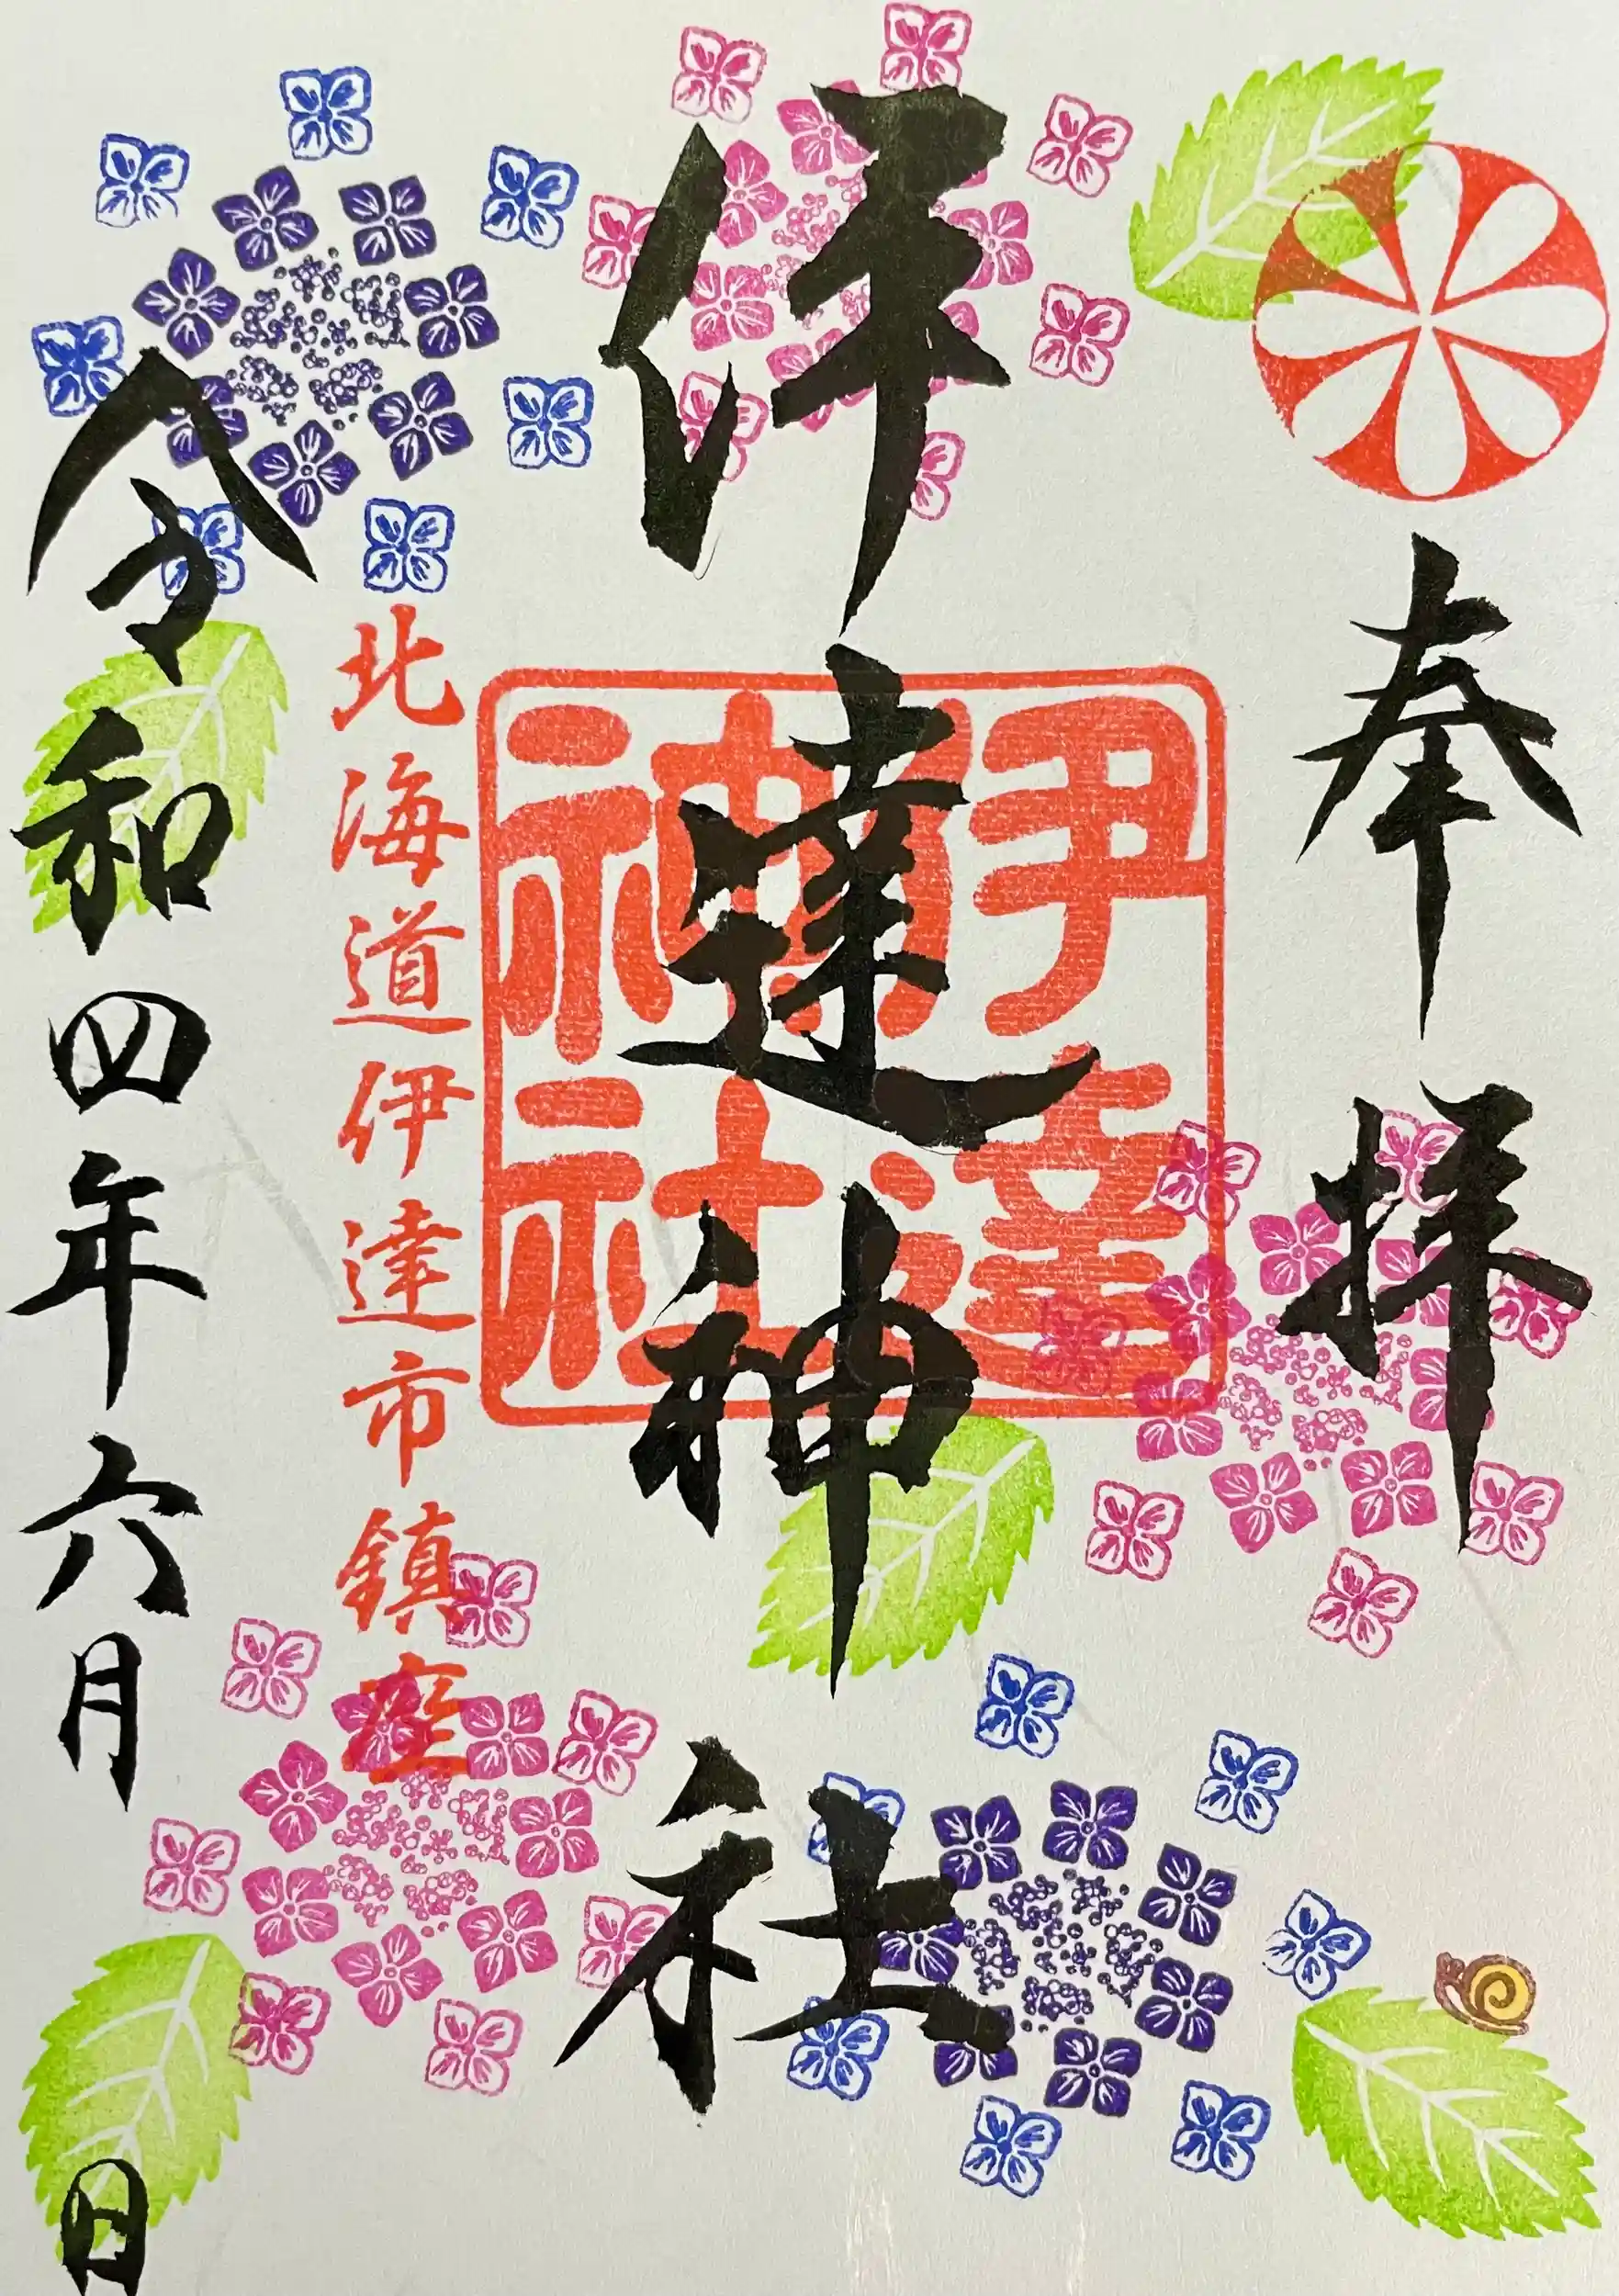 奉拝
伊達神社
伊達神社
北海道伊達市鎮座
令和四年六月 日